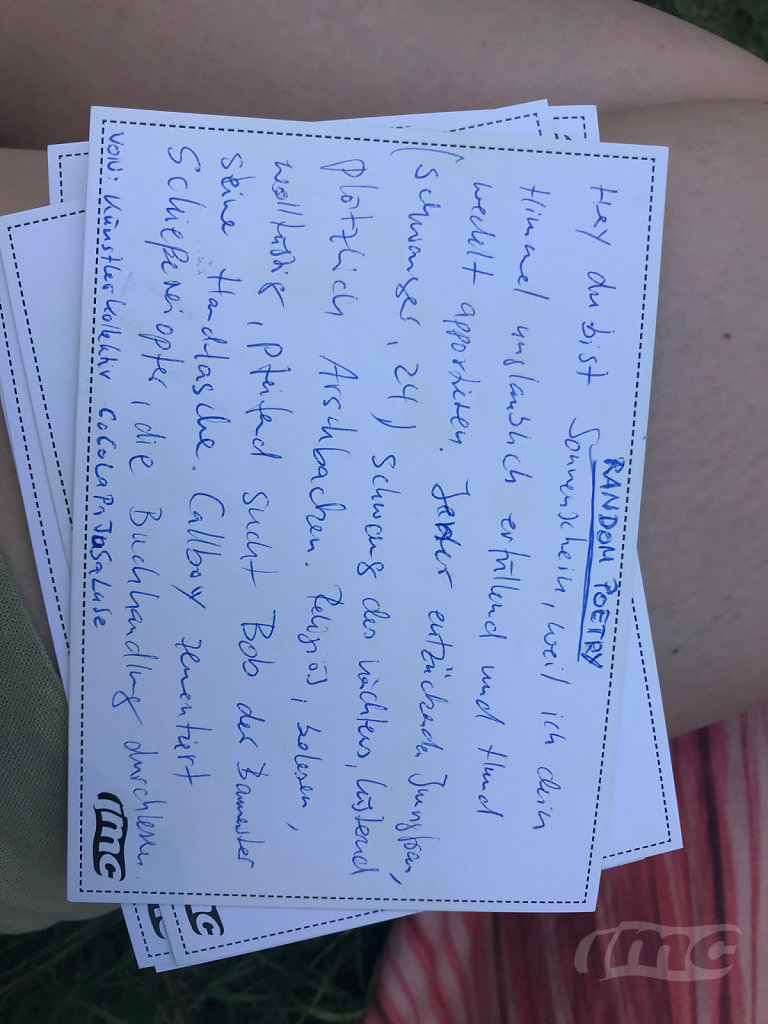 RANDOM POETRY
Hey du bist Sonnenschein, weil ich dein
Himmel unglaublich erfüllend und Hund
wedelt apportieren. Jeder entzückende Jungfrau,
(schwanger, 24) schwang des nächtens, lüstend
Plötzlich Arschbacken. Religiös, belesen,
wollüstig, pfeifend sucht Bob der Baumeister
seine Handtasche. Callboy zementiert
Schießereiopfer, die Buchhandlung durchlesen.
VON: Künstlerkollektiv
imc
imc
imc